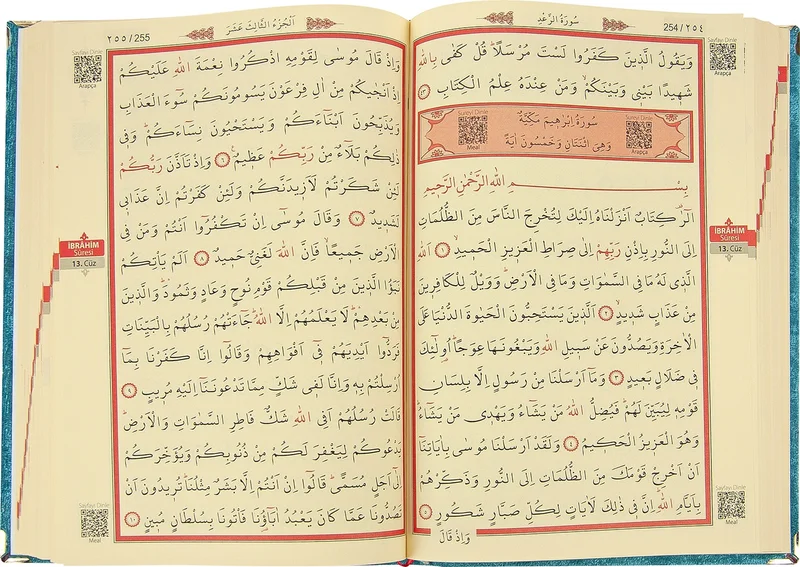 سُورَةُ الرَّعْدِ
254 / ٢٥٤
Sayfayı Dinle
Arapça
وَيَقُولُ الَّذِينَ كَفَرُوا لَسْتَ مُرْسَلًاۜ قُلْ كَفٰى بِاللّٰهِ
شَهِيدًا بَيْنِي وَبَيْنَكُمْۙ وَمَنْ عِنْدَهُ عِلْمُ الْكِتَابِ ٤٣
Sureyi Dinle
Meal
سُورَةُ اِبْرٰهِيمَ مَكِّيَّةٌ
وَهِيَ اثْنَتَانِ وَخَمْسُونَ اٰيَةً
Sureyi Dinle
Arapça
بِسْمِ اللّٰهِ الرَّحْمٰنِ الرَّحِيمِ
الٓرٰ۠ كِتَابٌ اَنْزَلْنَاهُ اِلَيْكَ لِتُخْرِجَ النَّاسَ مِنَ الظُّلُمَاتِ
اِلَى النُّورِ بِاِذْنِ رَبِّهِمْ اِلٰى صِرَاطِ الْعَزِيزِ الْحَمِيدِۙ ١ اَللّٰهِ
الَّذِي لَهُ مَا فِي السَّمٰوَاتِ وَمَا فِي الْاَرْضِۜ وَوَيْلٌ لِلْكَافِرِينَ
مِنْ عَذَابٍ شَدِيدٍۙ ٢ اَلَّذِينَ يَسْتَحِبُّونَ الْحَيٰوةَ الدُّنْيَا عَلَى
الْاٰخِرَةِ وَيَصُدُّونَ عَنْ سَبِيلِ اللّٰهِ وَيَبْغُونَهَا عِوَجًاۜ اُو۬لٰٓئِكَ
فِي ضَلَالٍ بَعِيدٍ ٣ وَمَٓا اَرْسَلْنَا مِنْ رَسُولٍ اِلَّا بِلِسَانِ
قَوْمِهِ لِيُبَيِّنَ لَهُمْۜ فَيُضِلُّ اللّٰهُ مَنْ يَشَٓاءُ وَيَهْدِي مَنْ يَشَٓاءُۜ
وَهُوَ الْعَزِيزُ الْحَكِيمُ ٤ وَلَقَدْ اَرْسَلْنَا مُوسٰى بِاٰيَاتِنَٓا
اَنْ اَخْرِجْ قَوْمَكَ مِنَ الظُّلُمَاتِ اِلَى النُّورِ وَذَكِّرْهُمْ
بِاَيَّامِ اللّٰهِۜ اِنَّ فِي ذٰلِكَ لَاٰيَاتٍ لِكُلِّ صَبَّارٍ شَكُورٍ ٥
وَاِذْ قَالَ
İBRÂHİM
Sûresi
13. Cüz
Sayfayı Dinle
Meal
اَلْجُزْءُ الثَّالِثَ عَشَرَ
٢٥٥ / 255
Sayfayı Dinle
Arapça
وَاِذْ قَالَ مُوسٰى لِقَوْمِهِ اذْكُرُوا نِعْمَةَ اللّٰهِ عَلَيْكُمْ
اِذْ اَنْجٰيكُمْ مِنْ اٰلِ فِرْعَوْنَ يَسُومُونَكُمْ سُٓوءَ الْعَذَابِ
وَيُذَبِّحُونَ اَبْنَٓاءَكُمْ وَيَسْتَحْيُونَ نِسَٓاءَكُمْۜ وَفِي
ذٰلِكُمْ بَلَٓاءٌ مِنْ رَبِّكُمْ عَظِيمٌ۟ ٦ وَاِذْ تَاَذَّنَ رَبُّكُمْ
لَئِنْ شَكَرْتُمْ لَاَزِيدَنَّكُمْ وَلَئِنْ كَفَرْتُمْ اِنَّ عَذَابِي
لَشَدِيدٌ ٧ وَقَالَ مُوسٰٓى اِنْ تَكْفُرُٓوا اَنْتُمْ وَمَنْ فِي
الْاَرْضِ جَمِيعًاۙ فَاِنَّ اللّٰهَ لَغَنِيٌّ حَمِيدٌ ٨ اَلَمْ يَأْتِكُمْ
نَبَؤُا الَّذِينَ مِنْ قَبْلِكُمْ قَوْمِ نُوحٍ وَعَادٍ وَثَمُودَۜ وَالَّذِينَ
مِنْ بَعْدِهِمْۜ لَا يَعْلَمُهُمْ اِلَّا اللّٰهُۜ جَٓاءَتْهُمْ رُسُلُهُمْ بِالْبَيِّنَاتِ
فَرَدُّٓوا اَيْدِيَهُمْ فِٓي اَفْوَاهِهِمْ وَقَالُٓوا اِنَّا كَفَرْنَا بِمَٓا
اُرْسِلْتُمْ بِهِ وَاِنَّا لَفِي شَكٍّ مِمَّا تَدْعُونَنَٓا اِلَيْهِ مُرِيبٍ ٩
قَالَتْ رُسُلُهُمْ اَفِي اللّٰهِ شَكٌّ فَاطِرِ السَّمٰوَاتِ وَالْاَرْضِۜ
يَدْعُوكُمْ لِيَغْفِرَ لَكُمْ مِنْ ذُنُوبِكُمْ وَيُؤَخِّرَكُمْ
اِلٰٓى اَجَلٍ مُسَمًّىۜ قَالُٓوا اِنْ اَنْتُمْ اِلَّا بَشَرٌ مِثْلُنَاۜ تُرِيدُونَ اَنْ
تَصُدُّونَا عَمَّا كَانَ يَعْبُدُ اٰبَٓاؤُ۬نَا فَأْتُونَا بِسُلْطَانٍ مُبِينٍ ١٠
İBRÂHİM
Sûresi
13. Cüz
Sayfayı Dinle
Meal